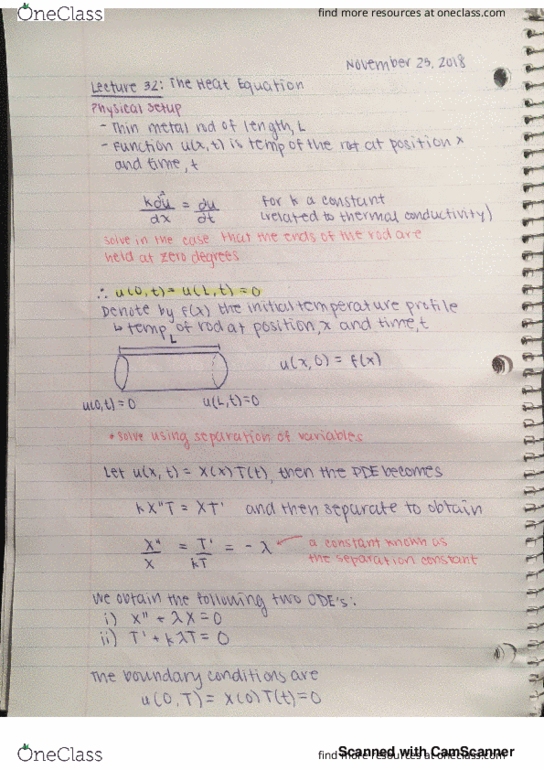 OneClass
find more resources at oneclass.com
November 25, 2018
Lecture 32: The Heat Equation
Physical Setup
- Thin metal rod of length, L
- Function u(x,t) is temp of the rod at position x
and time, t
k∂²u/dx = ∂u/∂t for k a constant
(related to thermal conductivity)
solve in the case that the ends of the rod are
held at zero degrees
∴ u(0,t) = u(L,t) = 0
Denote by f(x) the initial temperature profile
↳ temp of rod at position, x and time, t
L
u(x,0) = f(x)
u(0,t) = 0 u(L,t) = 0
• solve using separation of variables
Let u(x,t) = X(x)T(t), then the PDE becomes
kX"T = XT' and then separate to obtain
X"/X = T'/kT = -λ a constant known as
the separation constant
We obtain the following two ODE's:
i) X" + λX = 0
ii) T' + kλT = 0
The boundary conditions are
u(0,T) = X(0)T(t) = 0
OneClass
find more resources at oneclass.com
Scanned with CamScanner